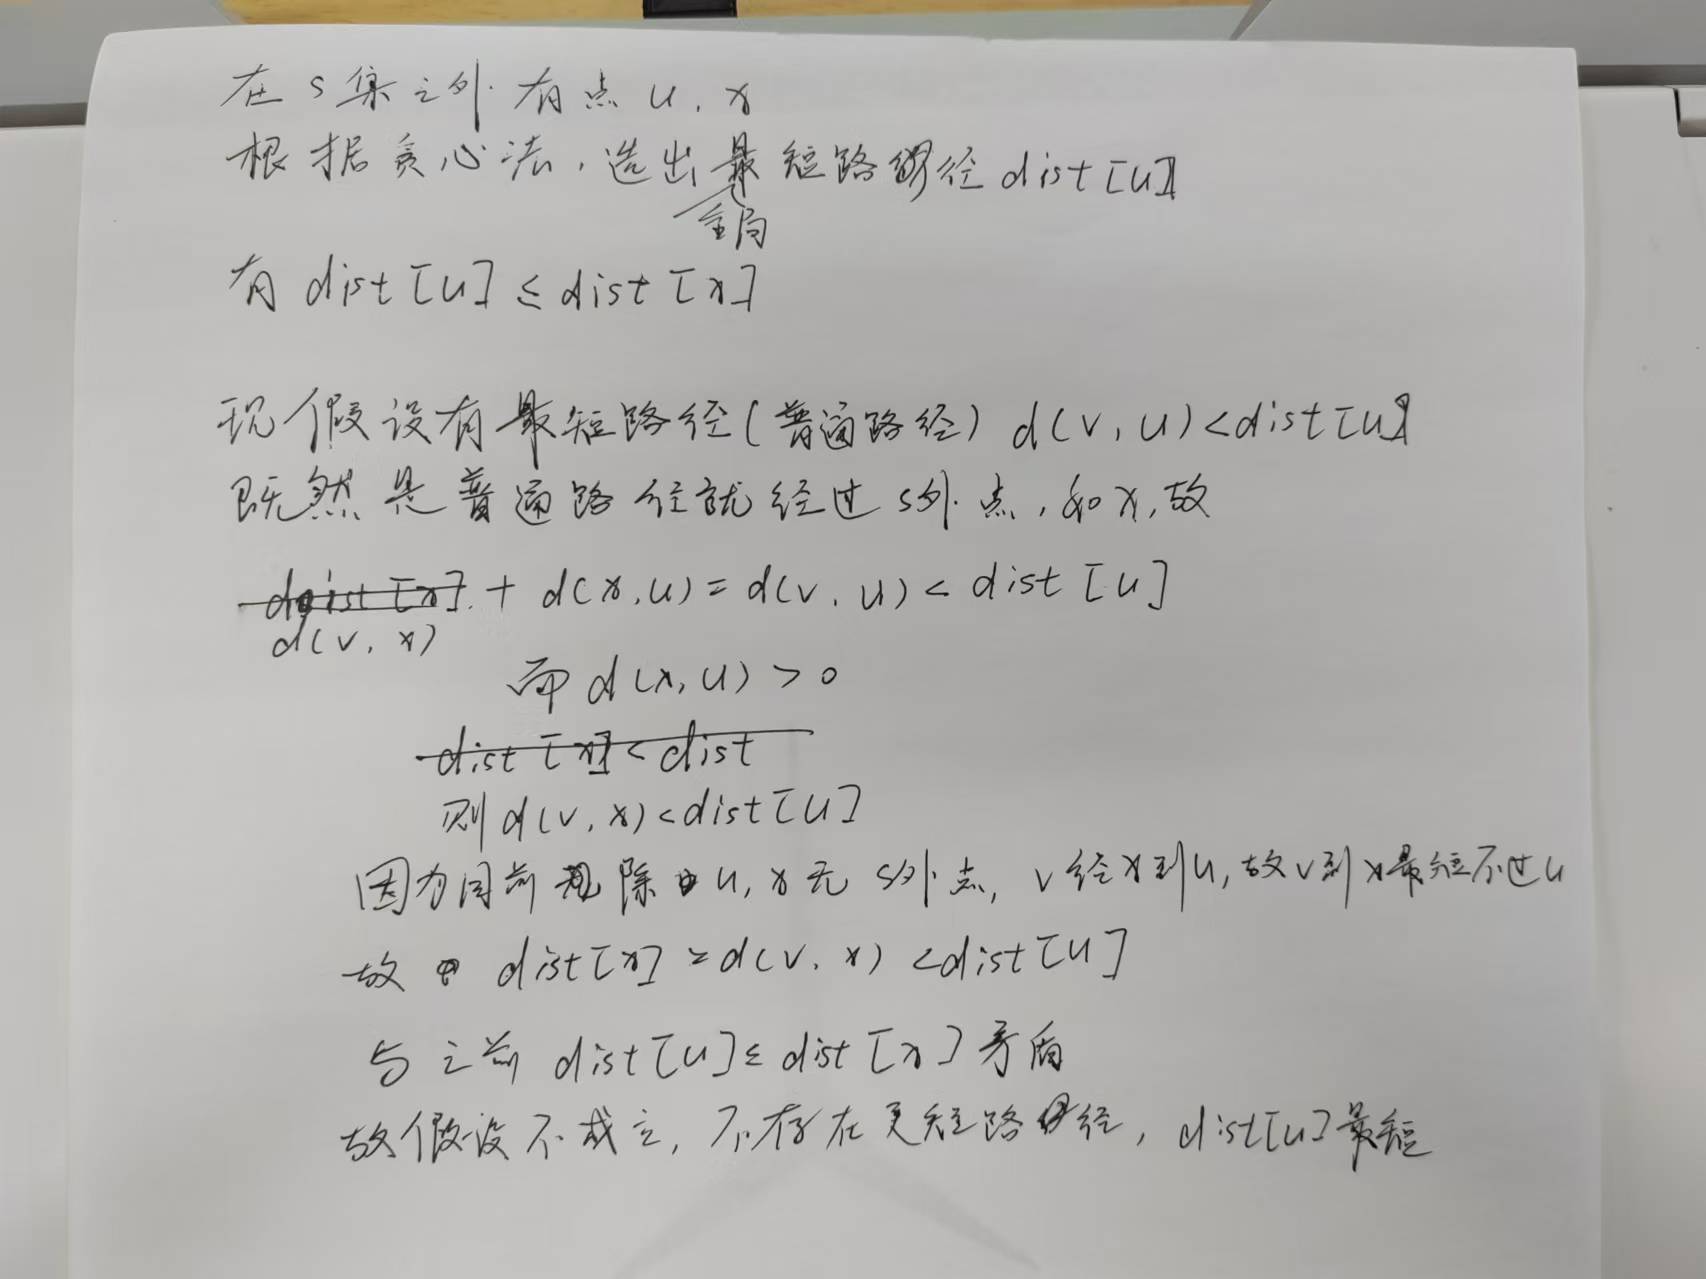 在S集之外有点u,x
根据贪心法,选出最短路径dist[u]
全局
有dist[u]≤dist[x]
现假设有最短路径(普通路径)d(v,u)<dist[u]
既然是普通路径就经过S外点,如x,故
dist[x]+d(x,u)=d(v,u)<dist[u]
d(v,x)
而d(x,u)>0
dist[x]<dist
则d(v,x)<dist[u]
因为目前除u,x无S外点,v经x到u,故v到x最短不过u
故dist[x]=d(v,x)<dist[u]
与之前dist[u]≤dist[x]矛盾
故假设不成立,不存在更短路径,dist[u]最短